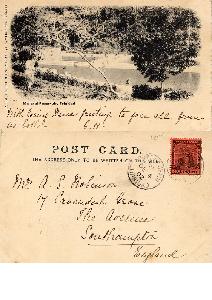 Maraval Reservoir, Trinidad
With loving Xmas greetings to you all from
us both
POST CARD.
THE ADDRESS ONLY TO BE WRITTEN ON THIS SIDE.
Mrs A. E. Robinson
17 Cranbury
The Avenue
Southampton
England